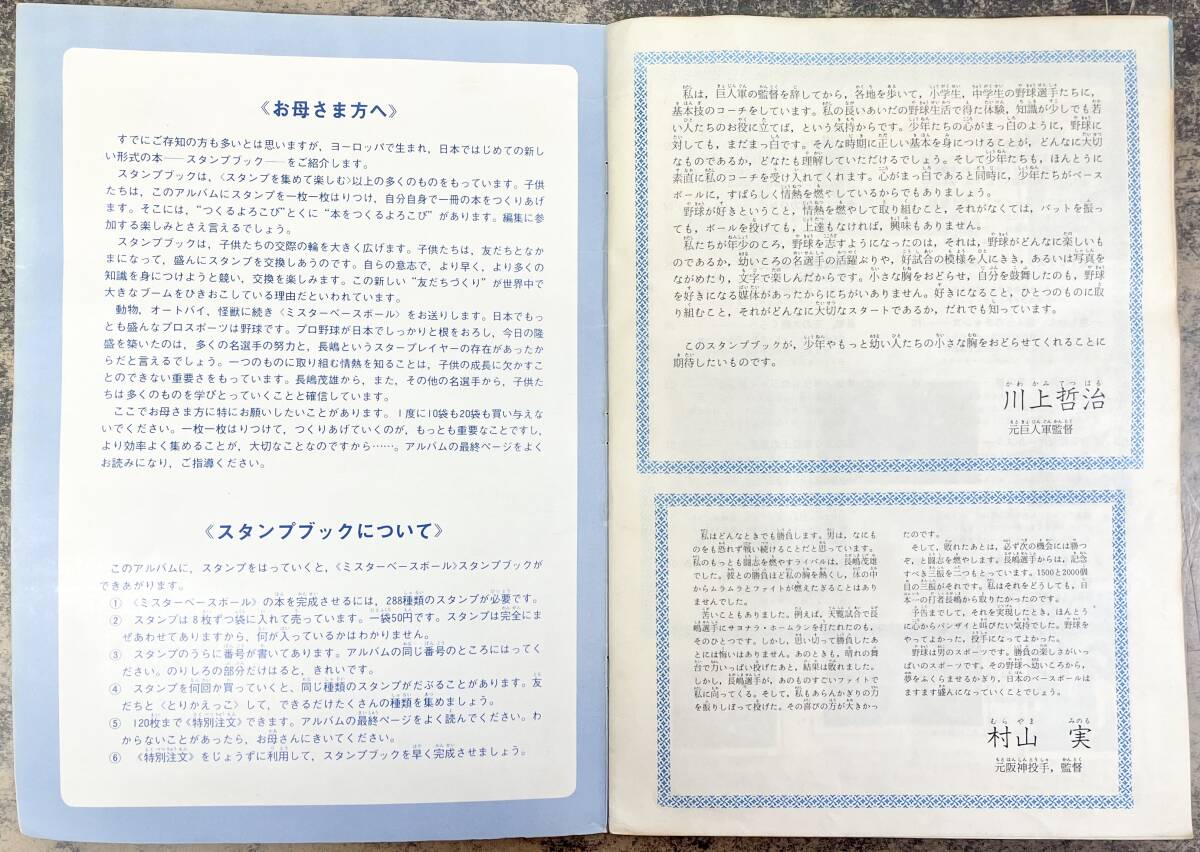 《お母さま方へ》
すでにご存知の方も多いとは思いますが，ヨーロッパで生まれ，日本ではじめての新し
い形式の本──スタンプブック──をご紹介します。
スタンプブックは，〈スタンプを集めて楽しむ〉以上の多くのものをもっています。子供
たちは，このアルバムにスタンプを一枚一枚はりつけ，自分自身で一冊の本をつくりあげ
ます。そこには，“つくるよろこび”とくに“本をつくるよろこび”があります。編集に参
加する楽しみとさえ言えるでしょう。
スタンプブックは，子供たちの交際の輪を大きく広げます。子供たちは，友だちとなか
まになって，盛んにスタンプを交換しあうのです。自らの意志で，より早く，より多くの
知識を身につけようと競い，交換を楽しみます。この新しい“友だちづくり”が世界中で
大きなブームをひきおこしている理由だといわれています。
動物，オートバイ，怪獣に続き〈ミスターベースボール〉をお送りします。日本でもっ
とも盛んなプロスポーツは野球です。プロ野球が日本でしっかりと根をおろし，今日の隆
盛を築いたのは，多くの名選手の努力と，長嶋というスタープレイヤーの存在があったか
らだと言えるでしょう。一つのものに取り組む情熱を知ることは，子供の成長に欠かすこ
とのできない重要さをもっています。長嶋茂雄から，また，その他の名選手から，子供た
ちは多くのものを学びとっていくことと確信しています。
ここでお母さま方に特にお願いしたいことがあります。1度に10袋も20袋も買い与えな
いでください。一枚一枚はりつけて，つくりあげていくのが，もっとも重要なことですし，
より効率よく集めることが，大切なことなのですから……。アルバムの最終ページをよく
お読みになり，ご指導ください。
《スタンプブックについて》
このアルバムに，スタンプをはっていくと，〈ミスターベースボール〉スタンプブックが
できあがります。
① 〈ミスターベースボール〉の本を完成させるには，288種類のスタンプが必要です。
② スタンプは8枚ずつ袋に入れて売っています。一袋50円です。スタンプは完全にま
ぜあわせてありますから，何が入っているかはわかりません。
③ スタンプのうらに番号が書いてあります。アルバムの同じ番号のところにはってく
ださい。のりしろの部分だけはると，きれいです。
④ スタンプを何回か買っていくと，同じ種類のスタンプがだぶることがあります。友
だちと〈とりかえっこ〉して，できるだけたくさんの種類を集めましょう。
⑤ 120枚まで《特別注文》できます。アルバムの最終ページをよく読んでください。わ
からないことがあったら，お母さんにきいてください。
⑥ 《特別注文》をじょうずに利用して，スタンプブックを早く完成させましょう。
私は，巨人軍の監督を辞してから，各地を歩いて，小学生，中学生の野球選手たちに，
基本技のコーチをしています。私の長いあいだの野球生活で得た体験，知識が少しでも若
い人たちのお役に立てば，という気持からです。少年たちの心がまっ白のように，野球に
対しても，まだまっ白です。そんな時期に正しい基本を身につけることが，どんなに大切
なものであるか，どなたも理解していただけるでしょう。そして少年たちも，ほんとうに
素直に私のコーチを受け入れてくれます。心がまっ白であると同時に，少年たちがベース
ボールに，すばらしく情熱を燃やしているからでもありましょう。
野球が好きということ，情熱を燃やして取り組むこと，それがなくては，バットを振っ
ても，ボールを投げても，上達もなければ，興味もありません。
私たちが年少のころ，野球を志すようになったのは，それは，野球がどんなに楽しいも
のであるか，幼いころの名選手の活躍ぶりや，好試合の模様を人にきき，あるいは写真を
ながめたり，文字で楽しんだからです。小さな胸をおどらせ，自分を鼓舞したのも，野球
を好きになる媒体があったからにちがいありません。好きになること，ひとつのものに取
り組むこと，それがどんなに大切なスタートであるか，だれでも知っています。
このスタンプブックが，少年やもっと幼い人たちの小さな胸をおどらせてくれることに
期待したいものです。
かわかみてつはる
川上哲治
元巨人軍監督
私はどんなときでも勝負します。男は，なにも
のをも恐れず戦い続けることだと思っています。
私のもっとも闘志を燃やすライバルは，長嶋茂雄
でした。彼との勝負ほど私の胸を熱くし，体の中
からムラムラとファイトが燃えたぎることはあり
ませんでした。
苦いこともありました。例えば，天覧試合で長
嶋選手にサヨナラ・ホームランを打たれたのも，
そのひとつです。しかし，思い切って勝負したあ
とには悔いはありません。あのときも，晴れの舞
台で力いっぱい投げたあと，結果は敗れました。
しかし，長嶋選手が，あのものすごいファイトで
私に向ってくる。そして，私もあらんかぎりの力
を振りしぼって投げた。その喜びの方が大きかっ
たのです。
そして，敗れたあとは，必ず次の機会には勝つ
ぞ，と闘志を燃やします。長嶋選手からは，記念
すべき三振を二つもとっています。1500と2000個
目の三振がそれです。私はそれをどうしても，日
本一の打者長嶋から取りたかったのです。
予告までして，それを実現したとき，ほんとう
に心からバンザイと叫びたい気持でした。野球を
やってよかった，投手になってよかった。
野球は男のスポーツです。勝負の楽しさがいっ
ぱいのスポーツです。その野球へ幼いころから，
夢をふくらませるかぎり，日本のベースボールは
ますます盛んになっていくことでしょう。
むらやま みのる
村山 実
元阪神投手，監督